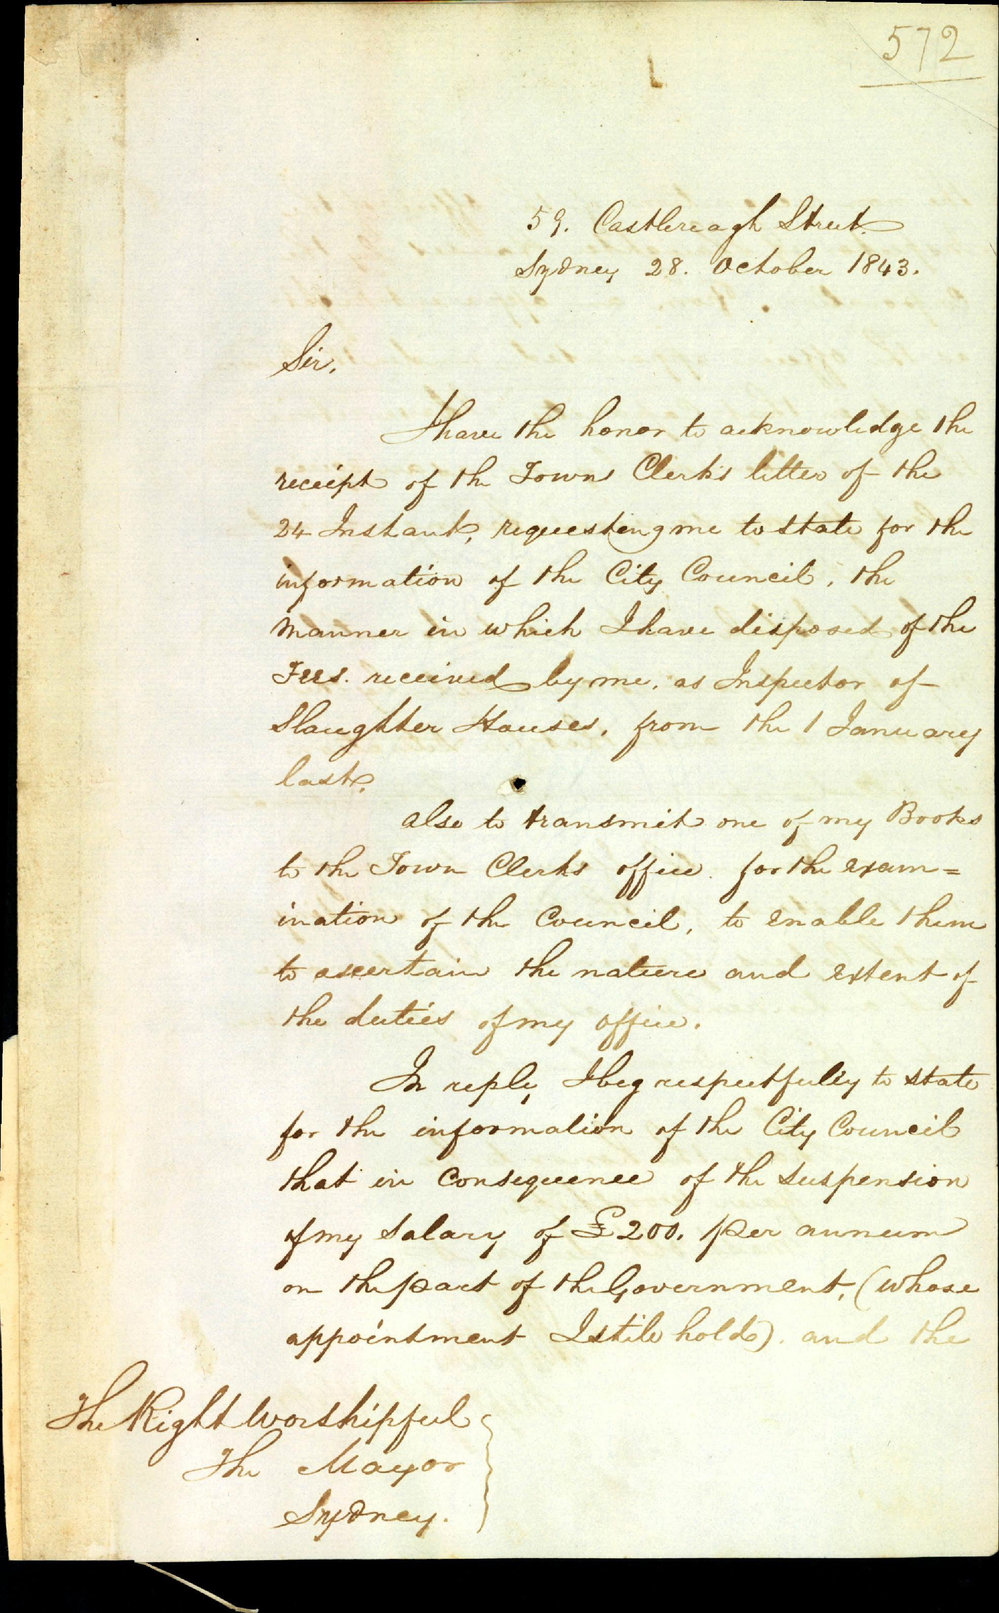 572
59. Castlereagh Street.
Sydney 28. October 1843.
Sir,
I have the honor to acknowledge the
receipt of the Town Clerk's letter of the
24 Instant, requesting me to state for the
information of the City Council, the
manner in which I have disposed of the
Fees. received by me, as Inspector of
Slaughter Houses, from the 1 January
last,
also to transmit one of my Books
to the Town Clerks office. for the exam=
ination of the Council, to enable them
to ascertain the nature and extent of
the duties of my office.
In reply, I beg respectfully to state
for the information of the City Council
that in consequence of the suspension
of my Salary of £200. per annum
on the part of the Government, (whose
appointment I still hold). and the
The Right Worshipful
The Mayor
Sydney.